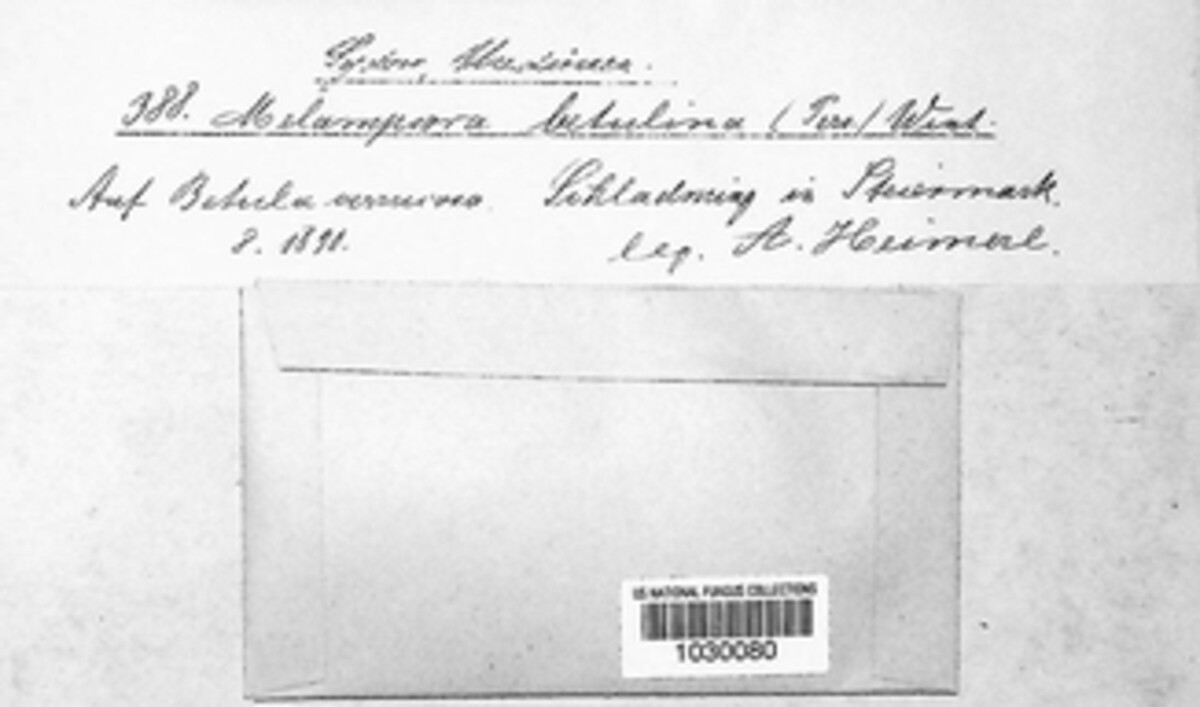 Sydow, Uredineen.
388. Melampsora betulina (Pers) Wint.
Auf Betula verrucosa. Schladming in Steiermark.
8. 1891. leg. A. Heimerl.
US NATIONAL FUNGUS COLLECTIONS
1030080